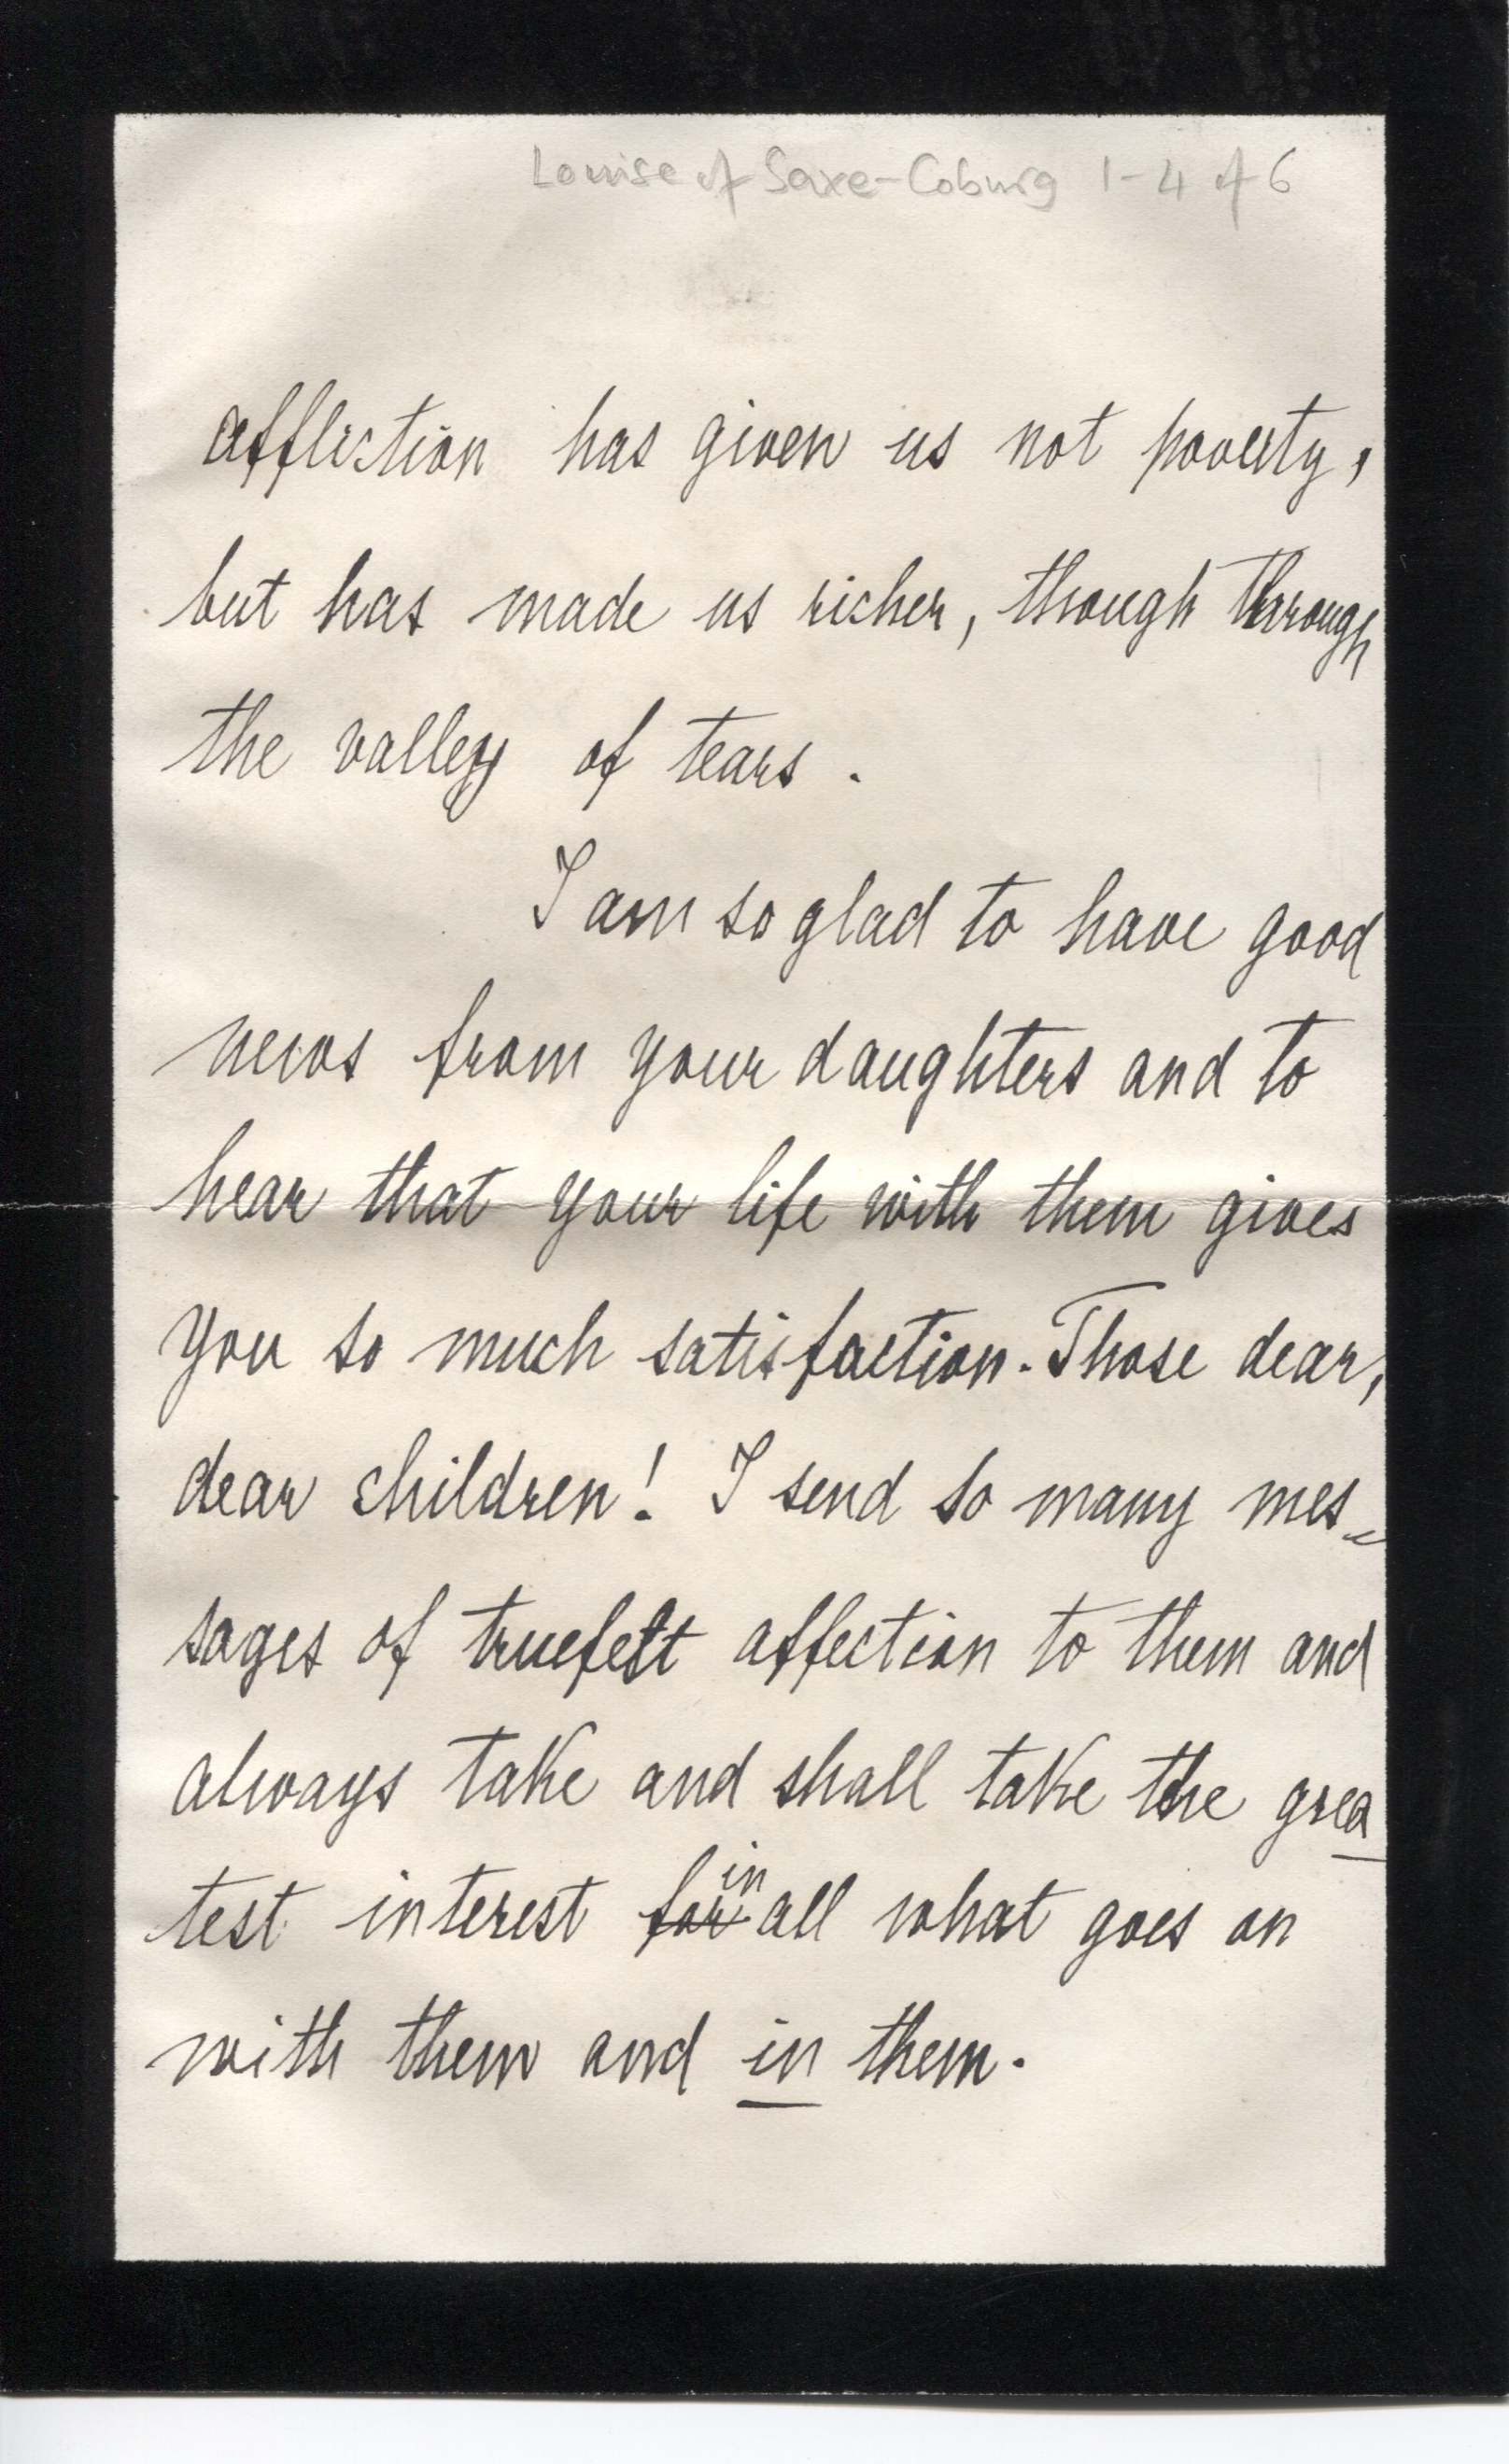 Louise of Saxe-Coburg 1-4 of 6
affliction has given us not poverty,
but has made us richer, though through
the valley of tears.
I am so glad to have good
news from your daughters and to
hear that your life with them gives
you so much satisfaction. Those dear,
dear children! I send so many mes-
sages of truefelt affection to them and
always take and shall take the grea
test interest for in all what goes on
with them and in them.